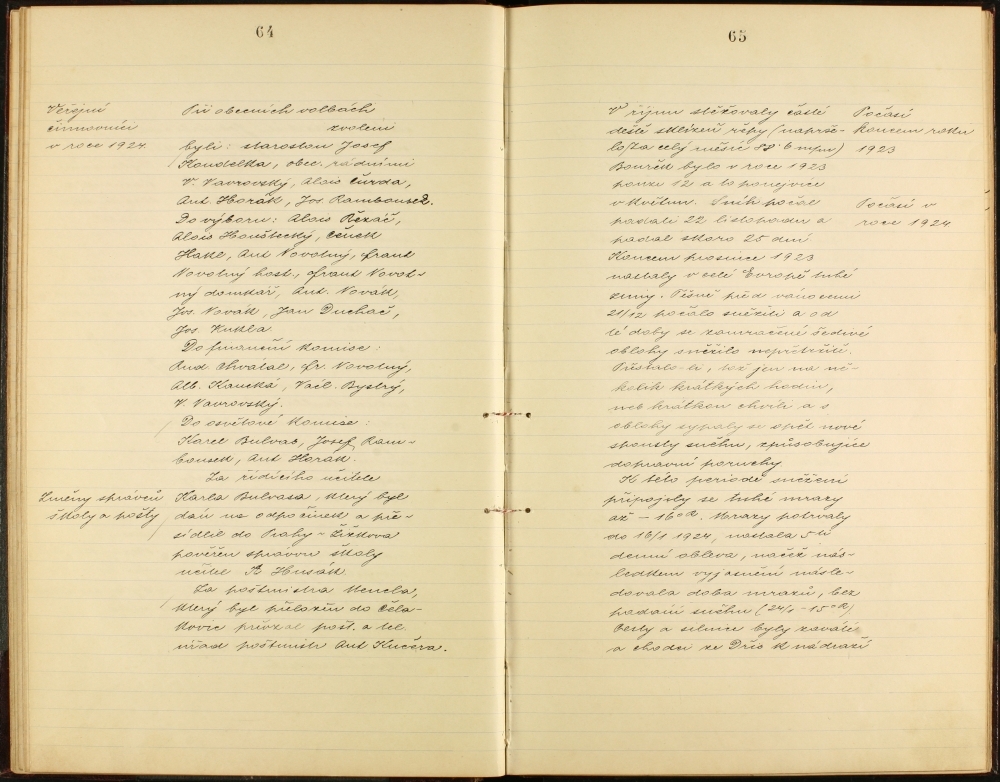 64
Veřejní
činovníci
v roce 1924
Při obecních volbách
zvoleni
byli: starostou Josef
Koudelka, obec. radními
V. Vavrovský, Alois Čurda,
Ant. Horák, Jos. Rambousek.
Do výboru: Alois Řezáč,
Alois Houštecký, Čeněk
Hakl, Ant Novotný, Frant
Novotný host., Frant Novot-
ný domkář, Ant. Novák,
Jos. Novák, Jan Duchač,
Jos. Kukla.
Do finanční komise:
And. Chvátal, Fr. Novotný,
Alb. Kaucká, Václ. Bystrý,
V. Vavrovský.
Do osvětové komise:
Karel Bulvas, Josef Ram-
bousek, Ant Horák.
Za řídícího učitele
Změny správců
školy a pošty
Karla Bulvasa, který byl
dán na odpočinek a pře-
sídlil do Prahy - Žižkova
pověřen správou školy
učitel B Husák.
Za poštmistra Mencla,
který byl přeložen do Čela-
kovic převzal pošt. a tel
úřad poštmistr Ant Kučera.
65
V říjnu stěžovaly časté
deště sklizeň řepy (naprše-
lo/za celý měsíc 58˙6 m/m)
Bouřek bylo v roce 1923
pouze 12 a to ponejvíce
v květnu. Sníh počal
padati 22 listopadu a
padal skoro 25 dní.
Koncem prosince 1923
nastaly v celé Evropě tuhé
zimy. Těsně před vánocemi
21/12 počalo sněžiti a od
té doby se zamračené šedivé
oblohy sněžilo nepřetržitě.
Přestalo-li, tož jen na ně-
kolik krátkých hodin,
neb krátkou chvíli a s
oblohy sypaly se opět nové
spousty sněhu, způsobujíce
dopravní poruchy
K této periodě sněžení
připojily se tuhé mrazy
až - 16°R. Mrazy potrvaly
do 16/1 1924, nastala 5ti
denní obleva, načež nás-
ledkem vyjasnění násle-
dovala doba mrazů, bez
padání sněhu (24/1 - 15°R)
Cesty a silnice byly zaváté
a chodci ze Dřís k nádraží
Počasí
koncem roku
1923
Počasí v
roce 1924